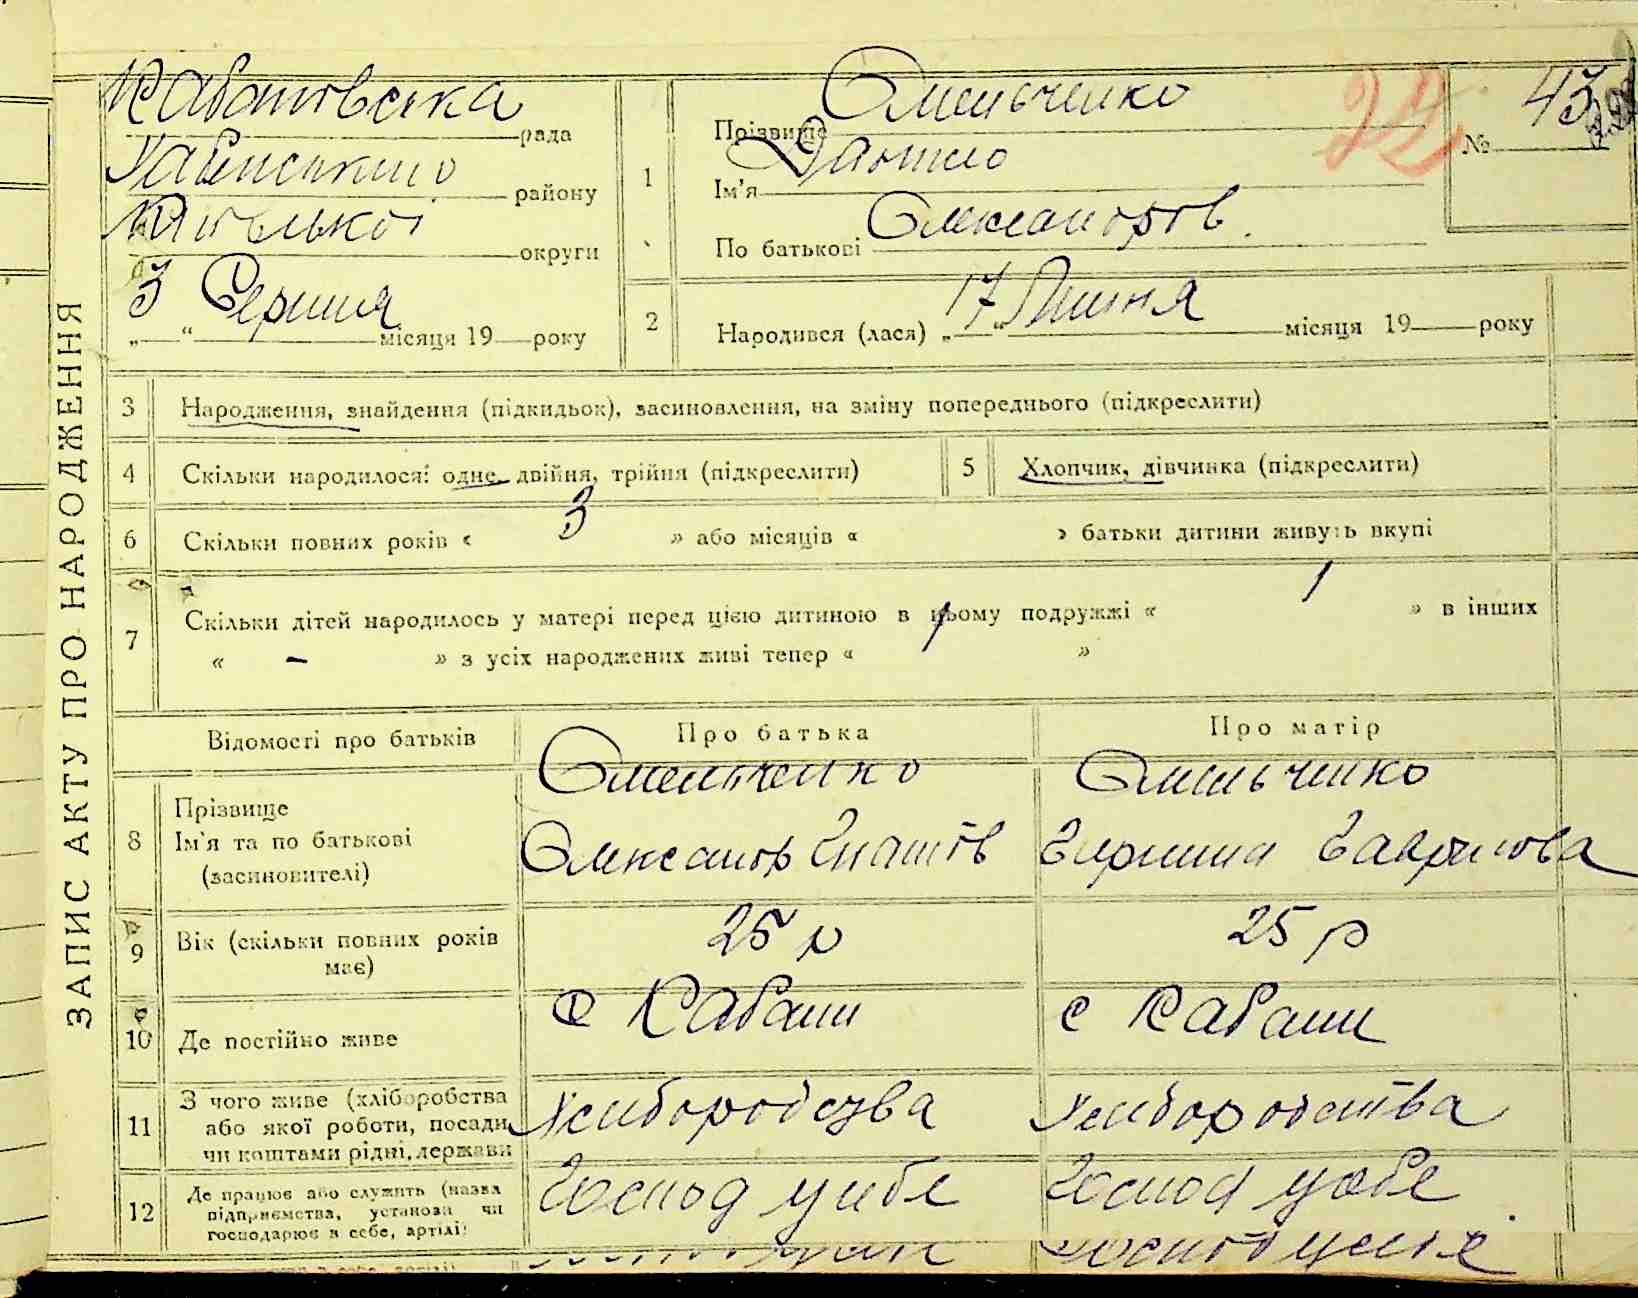 ЗАПИС АКТУ ПРО НАРОДЖЕННЯ
рада
району
округи
3 Серпня
„ “ місяця 19 року
1
Прізвище Омельченко
Ім'я Данило
По батькові Олександров.
22
№ 43
2
Народився (лася) „17“ Липня місяця 19 року
3 Народження, знайдення (підкидьок), засиновлення, на зміну попереднього (підкреслити)
4 Скільки народилося: одне, двійня, трійня (підкреслити)
5 Хлопчик, дівчинка (підкреслити)
6 Скільки повних років « 3 » або місяців « » батьки дитини живуть вкупі
7 Скільки дітей народилось у матері перед цією дитиною в цьому подружжі « 1 » в інших
« - » з усіх народжених живі тепер « 1 »
Відомості про батьків Про батька Про матір
8 Прізвище Ім'я та по батькові (засиновителі)
Омельченко Олександр Гнатів
Омельченко Гаврилова
9 Вік (скільки повних років має) 25 р 25 р
10 Де постійно живе с Кабани с Кабани
11 З чого живе (хліборобства або якої роботи, посади, чи коштами рідні, держави
Хліборобства Хліборобства
12 Де працює або служить (назва підприємства, установи чи господарює в себе, артілі)
Господ у себе Господ у себе